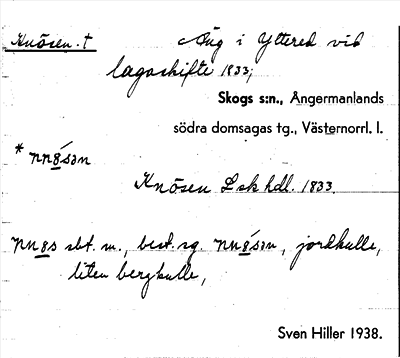 Knösen. † Äng i Yttered vid
lagaskifte 1833;
Skogs s:n., Ångermanlands
södra domsagas tg., Västernorrl. l.
* nn8́sən
Knösen Lskhdl. 1833.
nn8s sbt. m., best. sg. nn8́sən, jordkulle,
liten bergkulle,
Sven Hiller 1938.